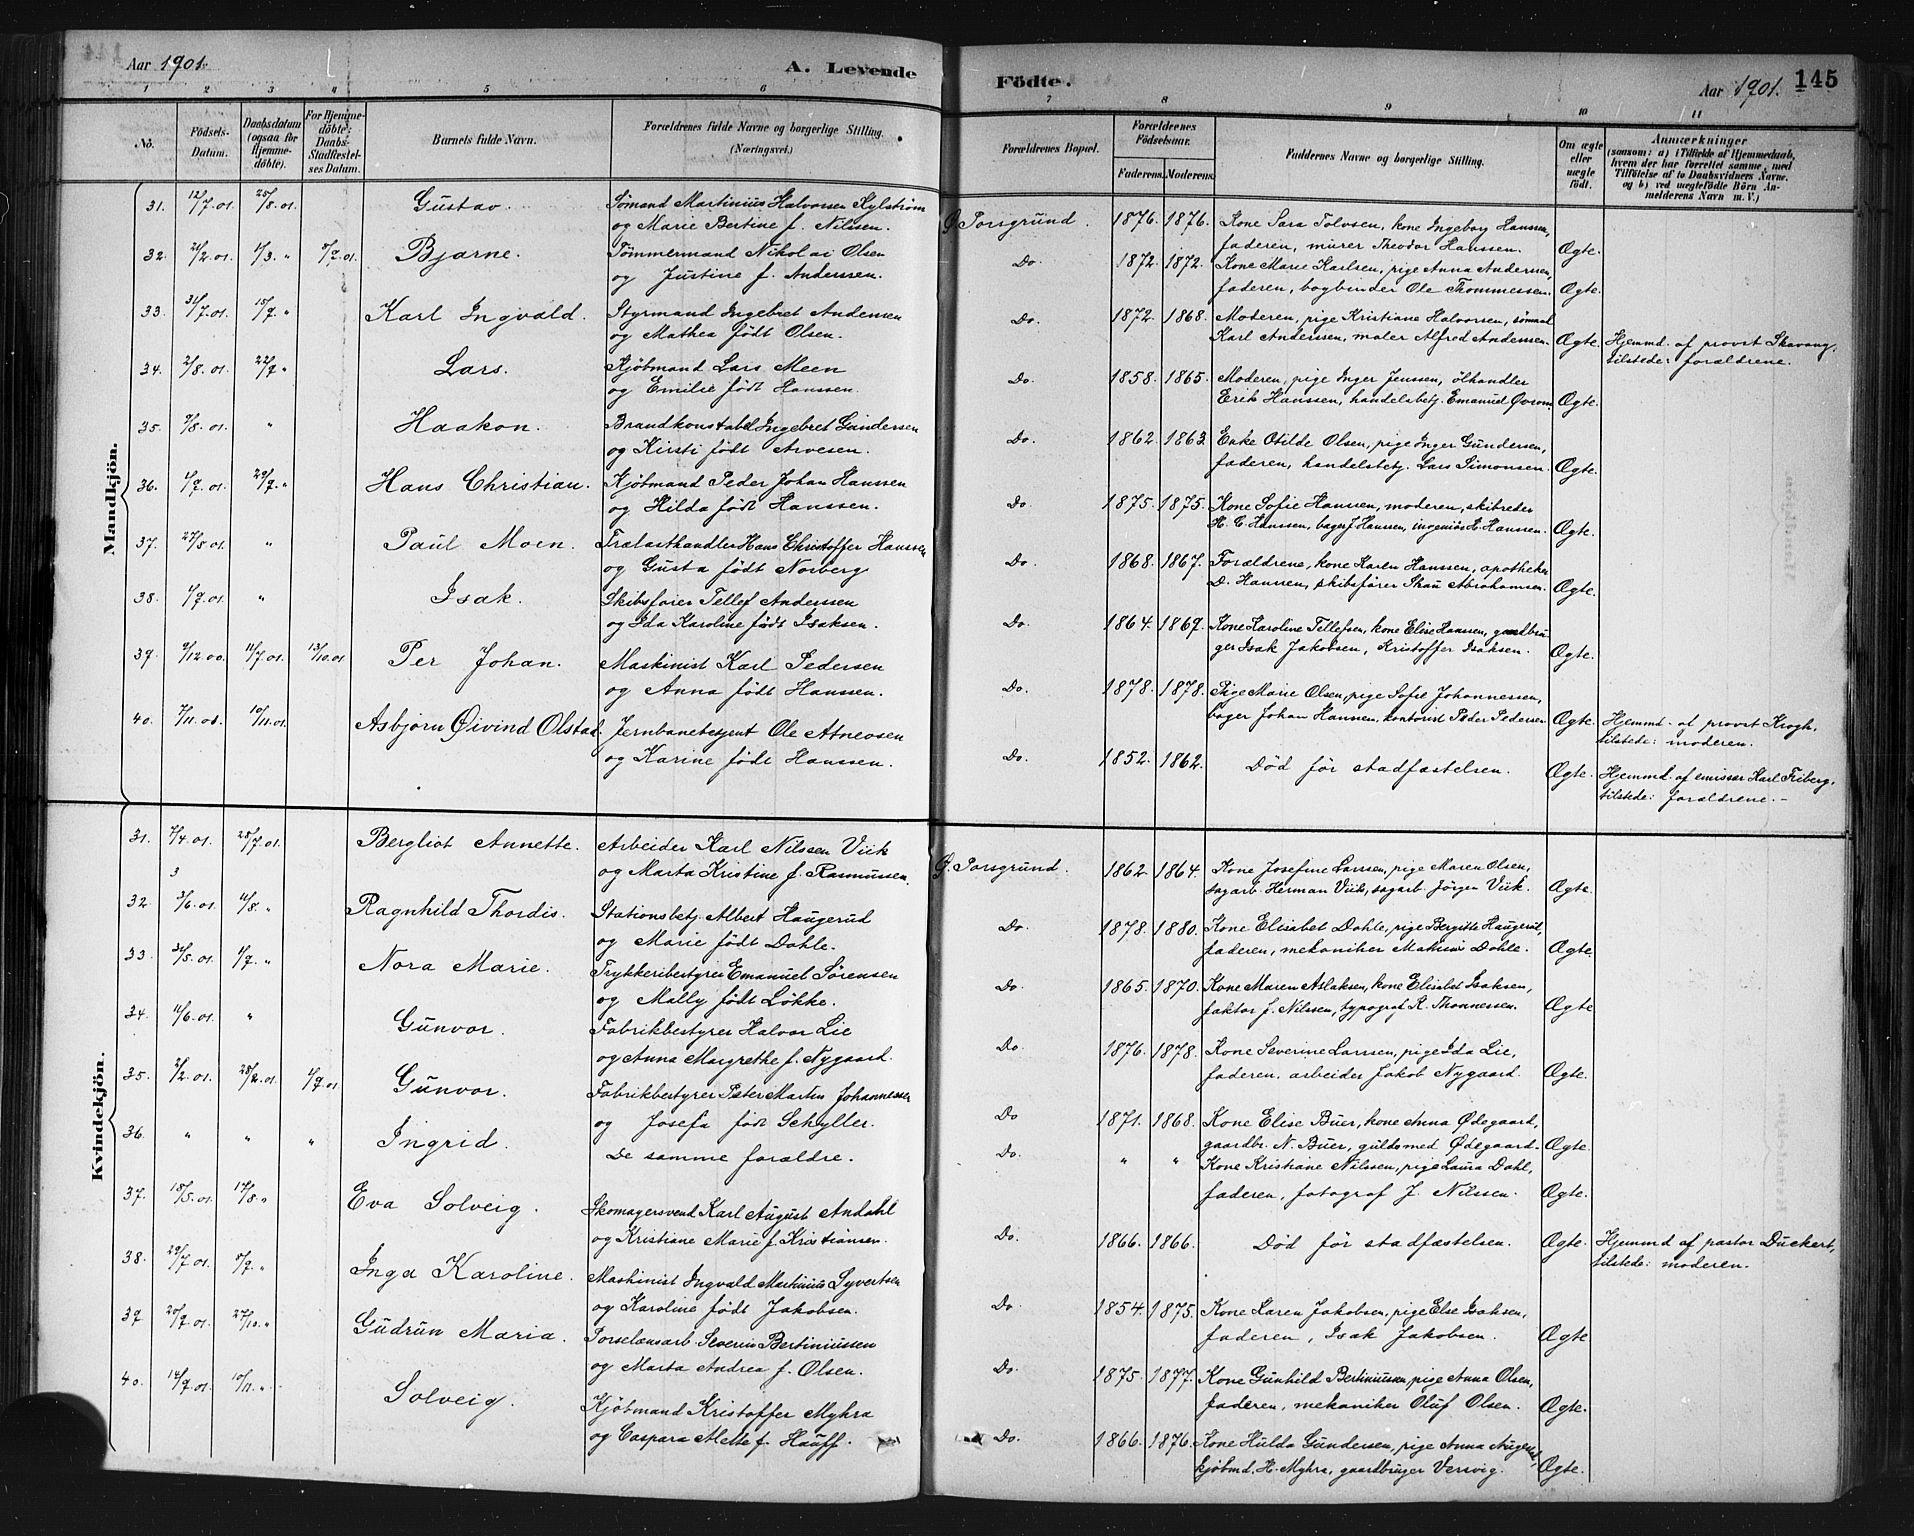 Aar 1901. A. Levende Födte. Aar 1901. 145
1 2 3 4 5 6 7 8 9 10 11
No. Födsels-Datum. Daabsdatum (ogsaa for Hjemmedöbte). For Hjemmedöbte; Daabs-Stadfæstelses Datum. Barnets fulde Navn. Forældrenes fulde Navne og borgerlige Stilling. (Næringsvei.) Forældrenes Bopæl. Forældrenes Födselsaar. Faderens. Moderens. Faddernes Navne og borgerlige Stilling. Om ægte eller uægte födt. Anmærkninger (saasom: a) i Tilfælde af Hjemmedaab, hvem der har forrettet samme, med Tilföielse af to Daabsvidners Navne, og b) ved uægtefödte Börn, Anmelderens Navn m. V.)
Mandkjön.
31. 12/7.01. 25/8.01. Gustav. Sømand Martinius Halvorsen Kylstrøm
og Marie Bertine f. Nilssen. Ø. Porsgrund. 1876. 1876. Kone Sara Tolvsen, kone Ingeborg Hanssen,
faderen, murer Theodor Hanssen. Ægte.
32. 21/2.01. 1/3. " 8/9.01. Bjarne. Tømmermand Nikolai Olsen
og Justine f. Anderssen. Do. 1872. 1872. Kone Marie Karlsen, pige Anna Anderssen,
faderen, bogbinder Ole Thommessen. Ægte.
33. 31/7.01. 15/9. " Karl Ingvald. Styrmand Ingebret Andersen
og Mathea født Olsen. Do. 1872. 1868. Moderen, pige Kristiane Halvorsen, sømand
Karl Anderssen, maler Alfred Anderssen. Ægte. Hjemmd. af provst Skavang,
tilstede: forældrene.
34. 2/8.01. 22/9 " Lars. Kjøbmand Lars Meen
og Emilie født Hanssen. Do. 1858. 1865. Moderen, pige Inger Jenssen, ølhandler
Erik Hanssen, handelsbetj. Emanuel Øvrom. Ægte.
35. 9/8.01. " Haakon. Brandkonstabel Ingebret Gundersen
og Kirsti født Arvesen. Do. 1862. 1863 Enke Otilde Olsen, pige Inger Gundersen,
faderen, handelsbetj. Lars Simonsen. Ægte.
36. 1/9.01. 29/9. " Hans Christian. Kjøbmand Peder Johan Hanssen
og Hilda født Hanssen. Do. 1875. 1875. Kone Sofie Hanssen, moderen, skibsreder
H. C. Hanssen, bager J. Hanssen, ingeniør H. Hanssen. Ægte.
37. 27/5.01. " Paul Moen. Trælasthandler Hans Christoffer Hanssen
og Gusta født Norberg Do. 1868. 1867. Forældrene, kone Karen Hanssen, apotheker
D. Hanssen, skibsfører Thau Abrahamsen. Ægte.
38. 1/9.01. " Isak. Skibsfører Tellef Anderssen
og Ida Karoline født Isaksen. Do. 1864. 1869. Kone Karoline Tellefsen, kone Elise Hanssen, gaardbru
ger Isak Jakobsen, Kristoffer Isaksen. Ægte.
39. 9/12.00. 11/7.01. 13/10.01 Per Johan. Maskinist Karl Pedersen
og Anna født Hanssen. Do. 1878. 1878. Pige Marie Olsen, pige Sofie Johannessen,
bager Johan Hanssen, kontorist Peder Pedersen Ægte. Hjemmd. af provst Krogh,
tilstede: moderen.
40. 7/11.01. 10/11.01. Asbjørn Øivind Olstad. Jernbanebetjent Ole Atneosen
og Karine født Hanssen. Do. 1852. 1862. Død før stadfæstelsen. Ægte. Hjemmd. af emissær Karl Friberg,
tilstede: forældrene.-
Kvindekjön.
31. 7/4.01. 28/7.01. Bergliot Annette. Arbeider Karl Nilssen Viik
3 og Marta Kristine f. Rasmussen. Ø. Porsgrund. 1862. 1864. Kone Josefine Larssen, pige Maren Olsen,
sagarb. Herman Viik, sagarb. Jørgen Viik. Ægte.
32 3/6.01. 11/8. " Ragnhild Thordis. Stationsbetj. Albert Haugerud
og Marie født Dahle. Do. 1878. 1880. Kone Elisabet Dahle, pige Bergitte Haugerud,
faderen, mekaniker Mathias Dahle. Ægte.
33. 31/5.01. 1/9. " Nora Marie. Trykkeribestyrer Emanuel Sørensen
og Mally født Løkke. Do. 1865. 1870. Kone Maren Aslaksen, kone Elisabet Isaksen,
faktor J. Nilssen, typograf R. Thonnessen. Ægte
34. 11/6.01. " Gunvor. Fabrikbestyrer Halvor Lie
og Anna Margrethe f. Nygaard. Do. 1876. 1878. Kone Severine Larssen, pige Ida Lie,
faderen, arbeider Jakob Nygaard. Ægte.
35. 2/2.01. 28/2.01. 1/9.01 Gunvor. Fabrikbestyrer Peter Martin Johannessen
og Josefa født Schyller. Do 1871. 1868. Kone Elise Buer, kone Anna Ødegaard,
gaardbr. N. Buer, guldsmed Ødegaard. Ægte.
36. " " " Ingrid. De samme forældre. Do. " " Kone Kristiane Nilssen, pige Laura Dahl,
faderen, fotograf J. Nilssen. Ægte.
37. 18/5.01. 17/8. " Eva Solveig. Skomagersvend Karl August Andahl
og Kristiane Marie f. Kristiansen. Do. 1866. 1866. Død før stadfæstelsen. Ægte. Hjemmd af pastor Duckert,
tilstede: moderen.
38. 29/7.01. 8/9. " Inga Karoline. Maskinist Ingvald Martinius Syvertsen
og Karoline født Jakobsen. Do 1854. 1875. Kone Karen Jakobsen, pige Else Isaksen,
faderen, Isak Jakobsen. Ægte
39 20/9.01. 27/10. " Gudrun Maria. Porselænsarb. Severin Bertiniussen
og Marta Andrea f. Olsen. Do 1875. 1877. Kone Gunhild Bertiniussen, pige Anna Olsen,
faderen, mekaniker Oluf Olsen. Ægte.
40. 14/9.01. 10/11. " Solveig. Kjøbmand Kristoffer Myhra
og Caspara Mette f. Hauff. Do. 1866. 1876. Kone Hulda Gundersen, pige Anna
kjøbmd. H. Myhre, gaardbruger Versvig. Ægte.